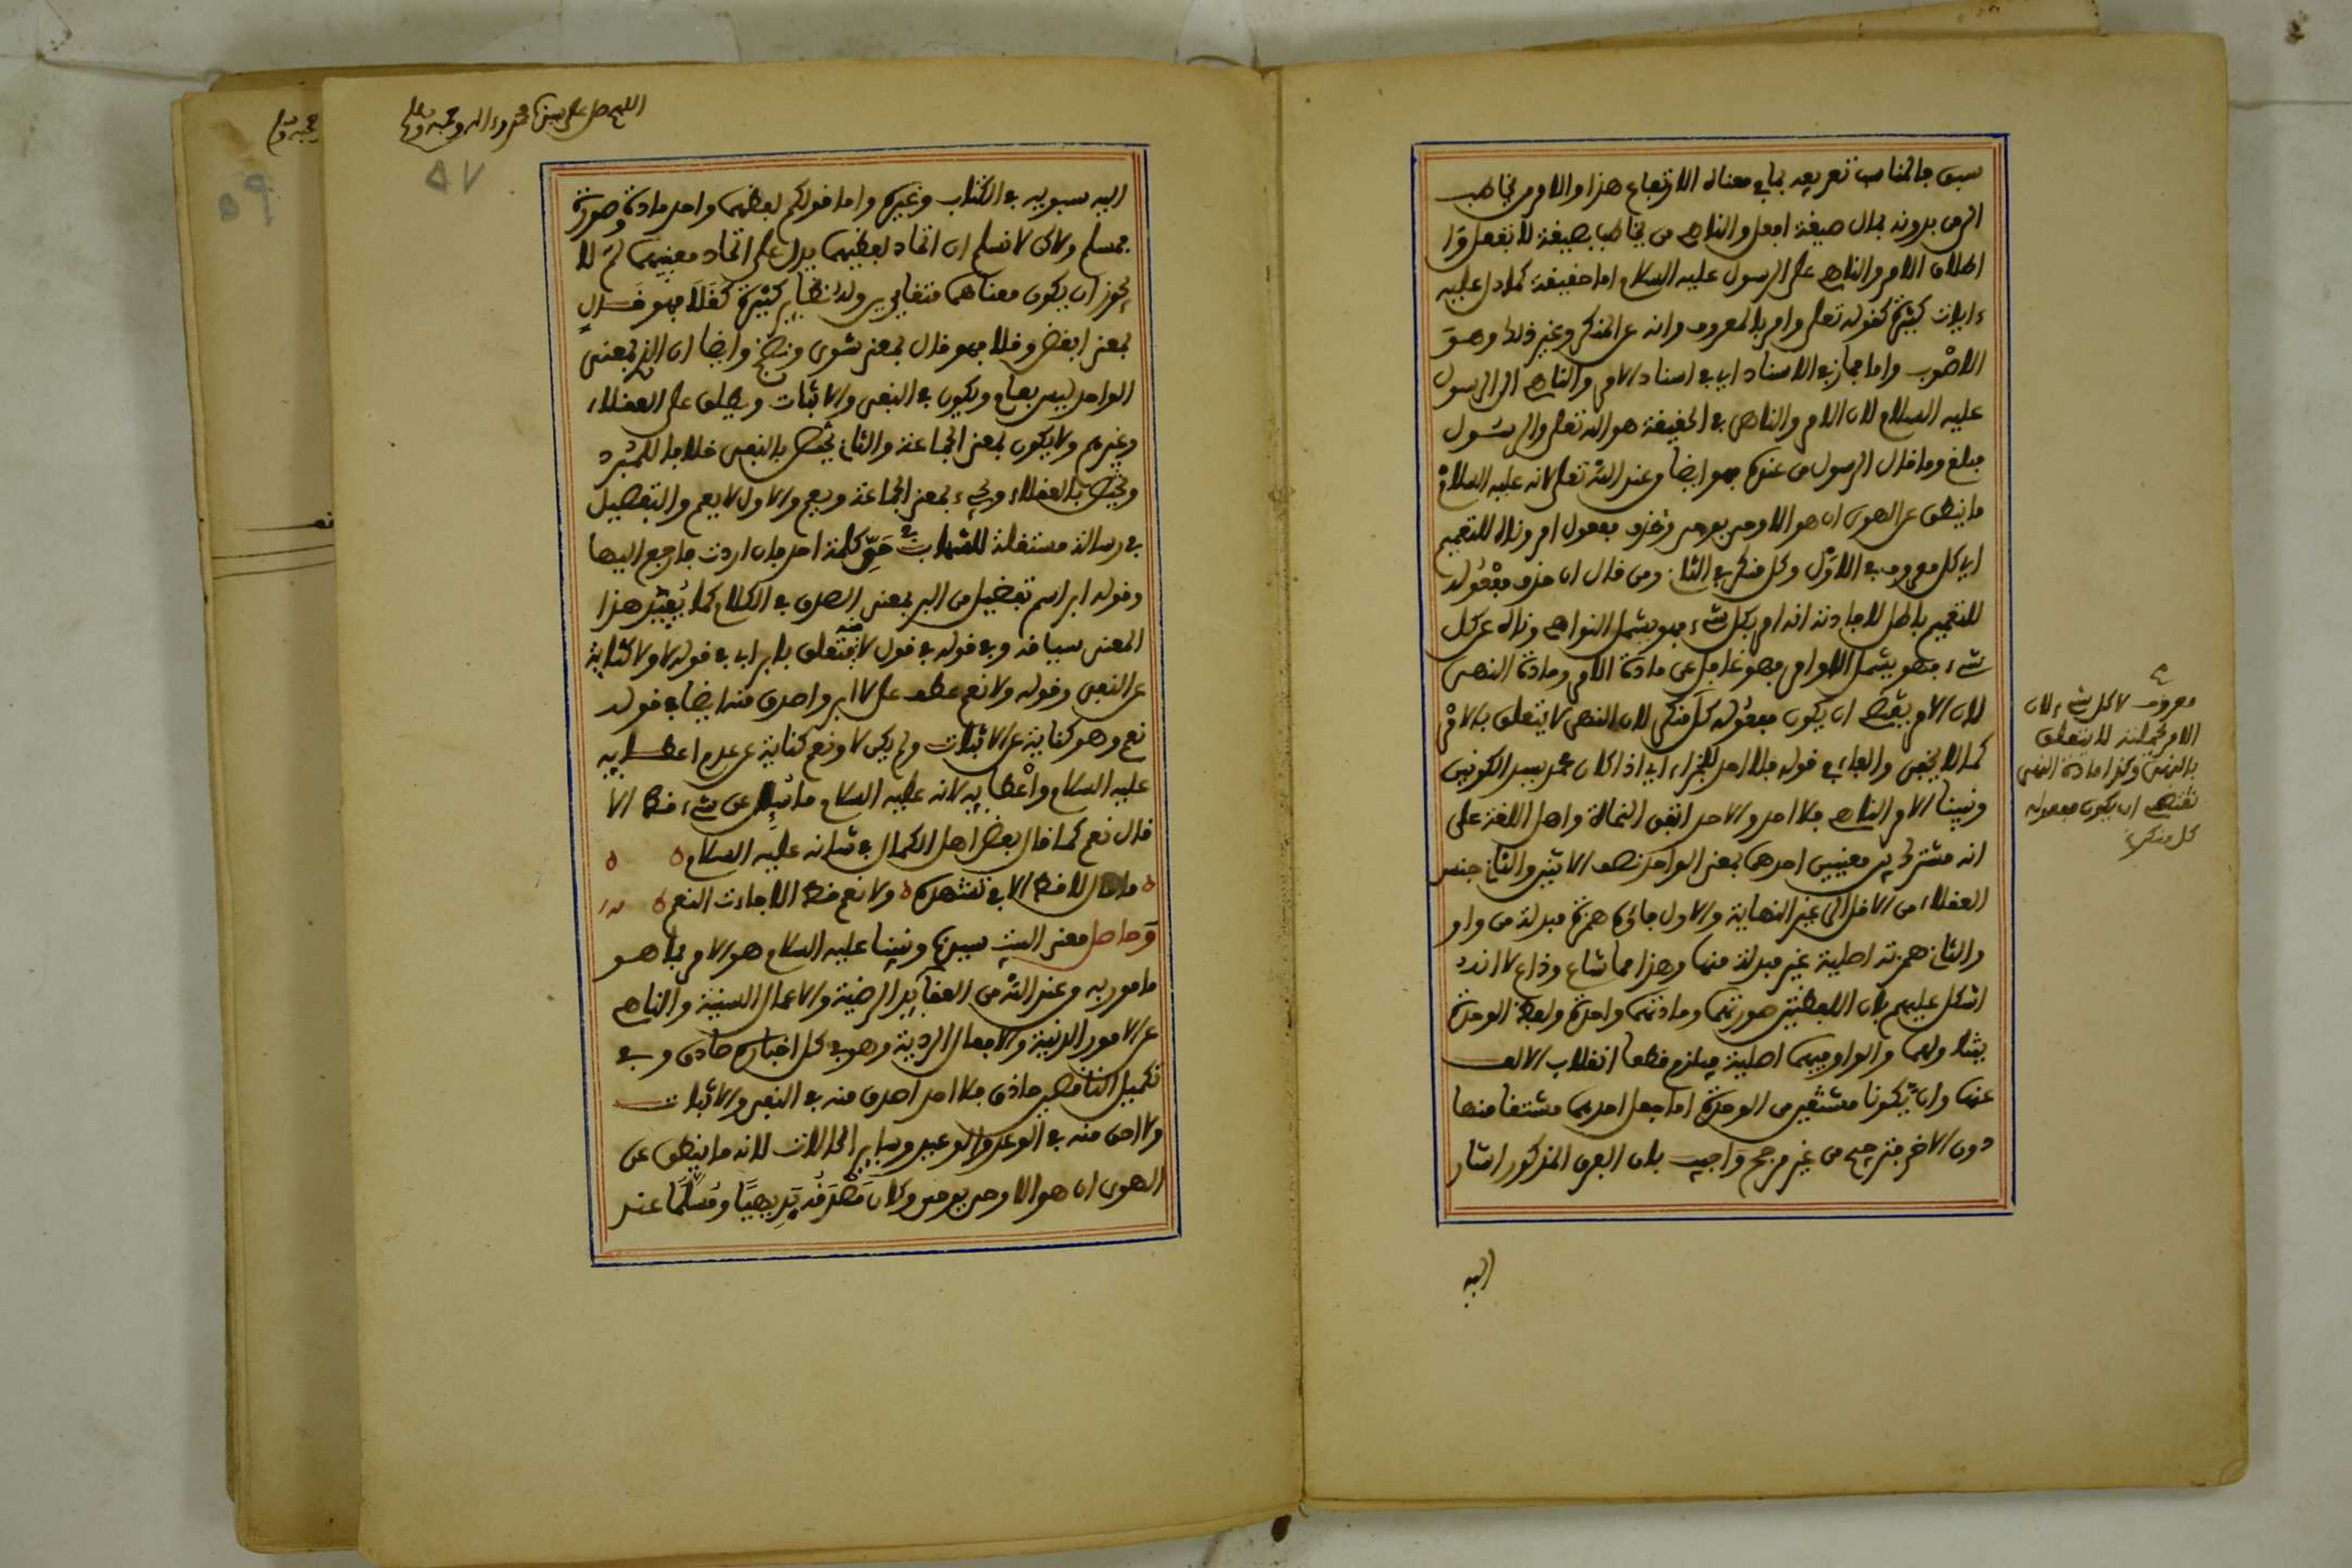 سبق فالمناسب تعريفه بما في معناه الارتفاع هذا والامر يخاطب
الى من دونه بمثال صيغة افعل والناهي من يخاطب بصيغة لا تفعل و
اطلاق الامر والناهي على الرسول عليه السلام اما حقيقة كما دل عليه
ءايات كثيرة كقوله تعلى وامر بالمعروف وانه عن المنكر وغير ذلك وهو
الاصوب واما مجاز في الاسناد اي في اسناد الامر والناهي الى الرسول
عليه السلام لان الامر والناهي في الحقيقة هو الله تعلى والرسول
مبلغ وما قال الرسول من عنده فهو ايضا من عند الله تعلى لانه عليه السلام
ما ينطق عن الهوى ان هو الا وحي يوحى وحذف مفعول امر وناه للتعميم
اي كل معروف في الاول وكل منكر في الثاني ومن قال ان حذف مفعوله
للتعميم باطل لافادته انه امر بكل شيء فهو يشمل النواهي وناه عن كل
شيء فهو يشمل الاوامر فهو غافل عن مادة الامر ومادة النهي
لان الامر يقتضي ان يكون مفعوله كل منكر لان النهي لا يتعلق بالامر
كما لا يخفى والفاء في قوله فلا احد للجزاء اي اذا كان محمد سيد الكونين
ونبينا الامر الناهي فلا احد والاحد اتفق النحاة واهل اللغة على
انه مشترك بين معنيين احدهما بمعنى الواحد نصف الاثنين والثاني جنس
العقلاء من الاقل الى غير النهاية والاول فاؤه همزة مبدلة من واو
والثاني همزته اصلية غير مبدلة منها وهذا مما شاع وذاع لا انه
اشكل عليهم بان اللفظين صورتهما ومادتهما واحدة ولفظ الوحدة
يتناولهما والواو فيهما اصلية فيلزم قطعا انقلاب الالف
عنها وان يكونا مشتقين من الوحدة اما جعل احدهما مشتقا منها
دون الاخر فترجيح من غير مرجح واجيب بان الفرق المذكور اشار
اليه
معروف لا كل شيء لان
الامر بجملته لا يتعلق
بالنهي وكذا مادة النهي
تقتضي ان يكون مفعوله
كل منكر
اللهم صل على سيدنا محمد وءاله وصحبه وسلم
٥٧
اليه سيبويه في الكتاب وغيره واما قولكم لفظهما واحد مادة وصورة
فمسلم ولاكن لا نسلم ان اتحاد لفظيهما يدل على اتحاد معنييهما لم لا
يجوز ان يكون معناهما متغايرين وله نظاير كثيرة كقلا فهو قال
بمعنى ابغض وقلا فهو قال بمعنى شوى ونضج وايضا ان الذي بمعنى
الواحد ليس بعام ويكون في النفي والاثبات ويطلق على العقلاء
وغيرهم ولا يكون بمعنى الجماعة والثاني يختص بالنفي خلافا للمبرد
ويختص بالعقلاء ويجيء بمعنى الجماعة ويعم والاول لا يعم والتفصيل
في رسالة مستقلة للشهاب في حق كلمة احد فان اردت فارجع اليها
وقوله ابر اسم تفضيل من البر بمعنى الصدق في الكلام كما يعتبر هذا
المعنى سياقه وفي قوله في قول لا منه متعلق بابر اي في قوله لا ولا كناية
عن النفي وقوله ولا نعم عطف على لا ابر واصدق منه ايضا في قوله
نعم وهو كناية عن الاثبات ولم يكن لا ونعم كناية عن عدم اعطايه
عليه السلام واعطايه لانه عليه السلام ما سيل عن شيء قط الا
قال نعم كما قال بعض اهل الكمال في شانه عليه السلام
ما قال لا قط الا في تشهده ولا نعم قط الا جاءت النعم
وحاصل معنى البيت سيدنا ونبينا عليه السلام هو الامر بما هو
مامور به من عند الله من العقايد المرضية والاعمال السنية والناهي
عن الامور الدنية والافعال الردية وهو في كل اخباره صادق وفي
تكميل الناقصين حاذق فلا احد اصدق منه في النفي والاثبات
ولا احق منه في الوعد والوعيد وساير الحالات لانه ما ينطق عن
الهوى ان هو الا وحي يوحى وكان صدقه بديهيا ومسلما عند